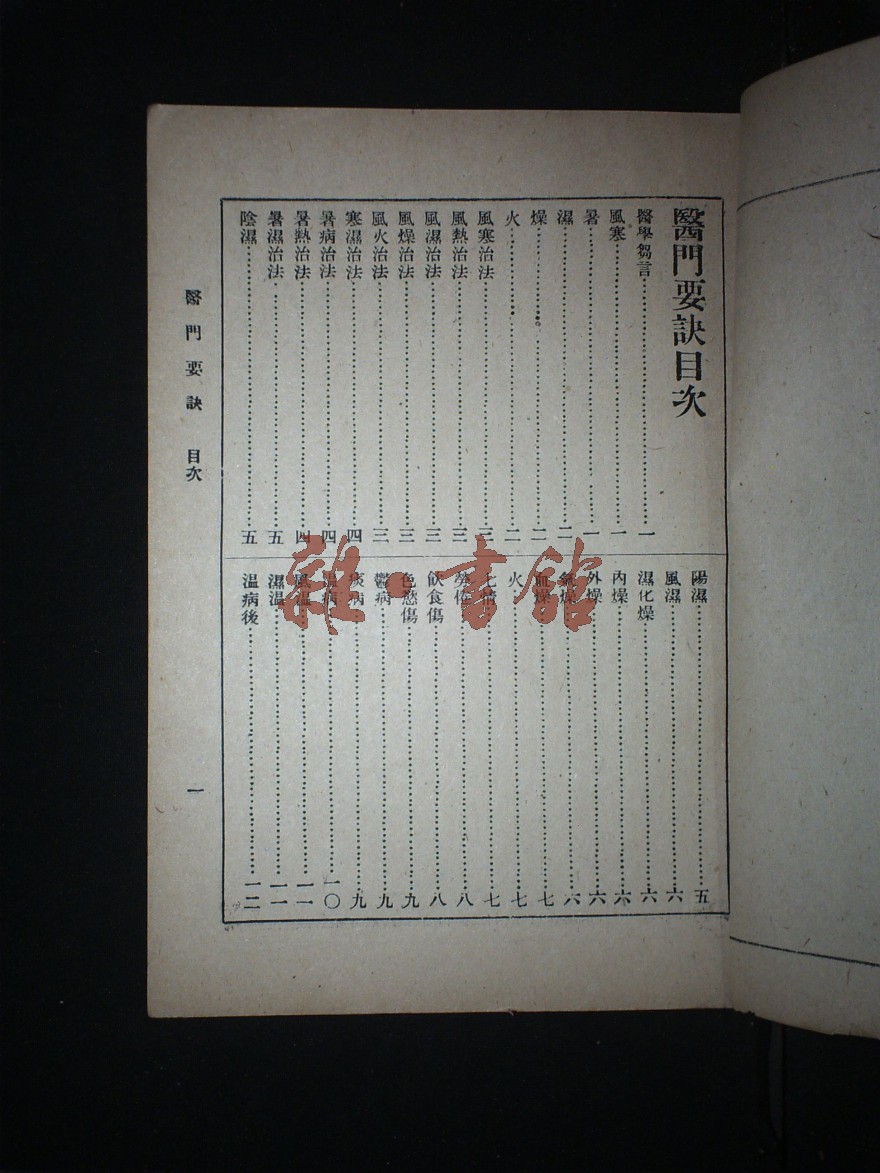 醫門要訣目次
醫學芻言……一
風寒……一
暑……一
濕……二
燥……二
火……二
風寒治法……三
風熱治法……三
風濕治法……三
風燥治法……三
風火治法……三
寒濕治法……四
暑病治法……四
暑熱治法……四
暑濕治法……五
陰濕……五
陽濕……五
風濕……六
濕化燥……六
內燥……六
外燥……六
氣燥……六
血燥……七
火……七
七情……七
勞倦……八
飲食傷……八
色慾傷……九
鬱病……九
痰病……九
温病……一〇
風温……一一
濕温……一一
温病後……一二
醫門要訣 目次
一
雜·書館